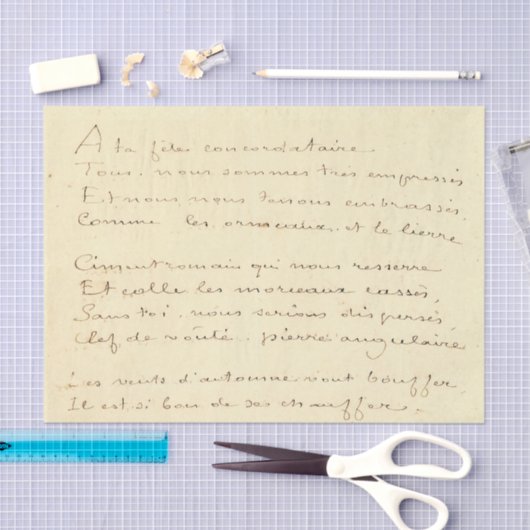 A ta fête concordataire
Tous, nous sommes très empressés
Et nous nous tenons embrassés,
Comme les ormeaux et le lierre
Ciment romain qui nous resserre
Et colle les morceaux cassés,
Sans toi, nous serions dispersés,
Clef de voûte, pierre angulaire
Les vents d'automne vont bouffer,
Il est si bon de se chauffer.